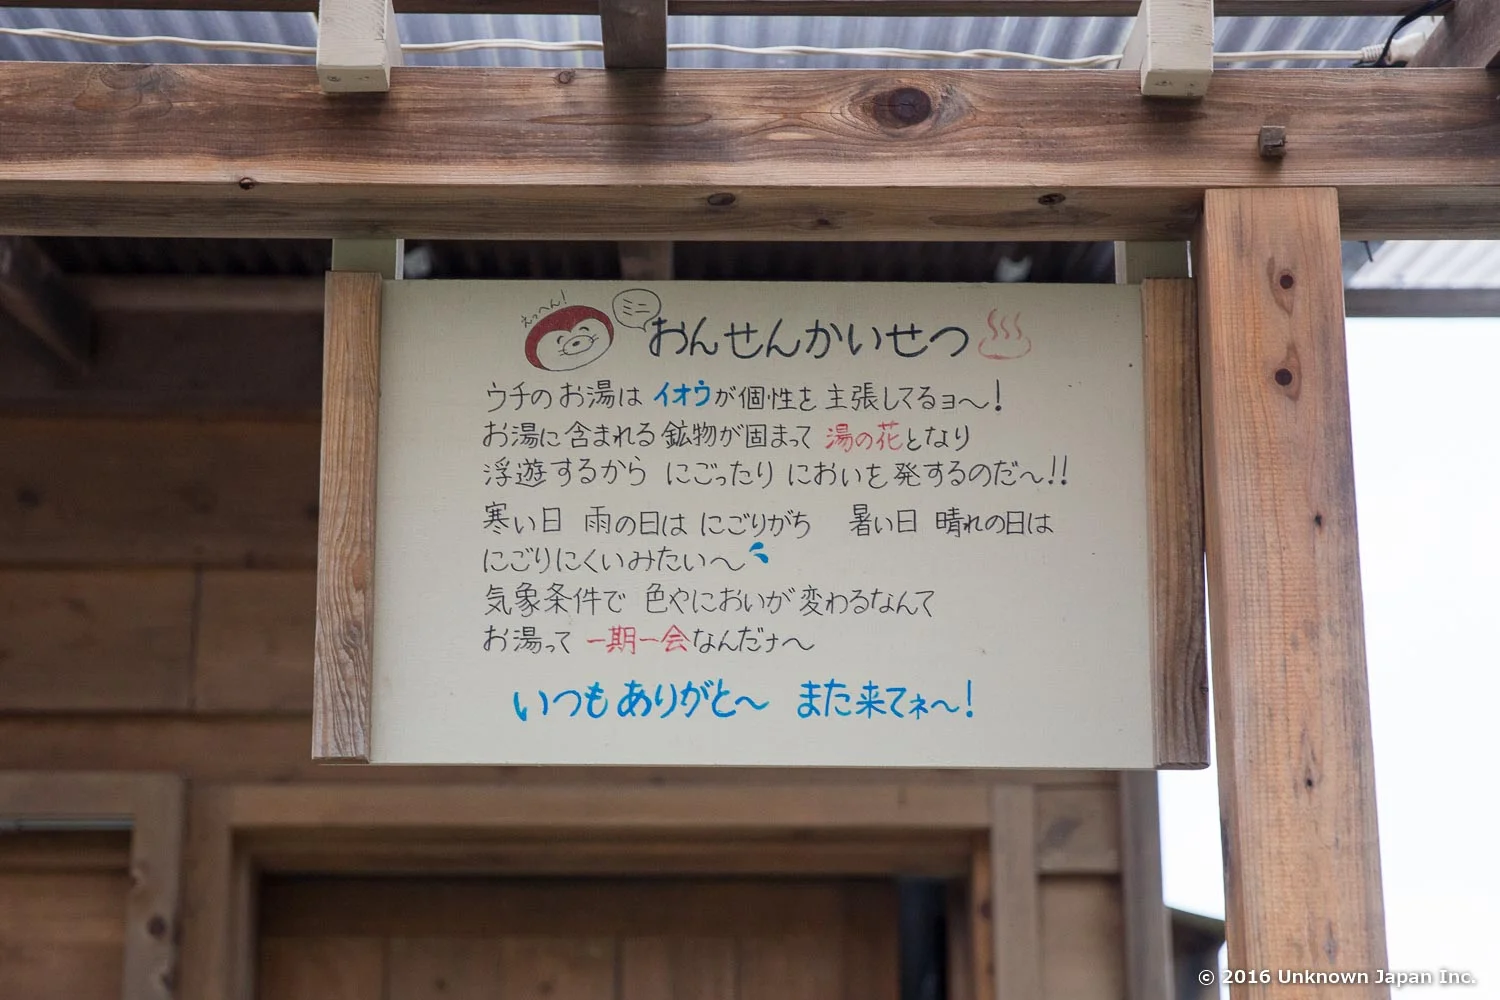 えっへん!
ミニ
おんせんかいせつ
ウチのお湯は イオウが個性を主張してるョ〜!
お湯に含まれる鉱物が固まって 湯の花となり
浮遊するから にごったり においを発するのだ〜!!
寒い日 雨の日は にごりがち 暑い日 晴れの日は
にごりにくいみたい〜
気象条件で 色やにおいが変わるなんて
お湯って 一期一会なんだナ〜
いつもありがと〜 また来てネ〜!
© 2016 Unknown Japan Inc.